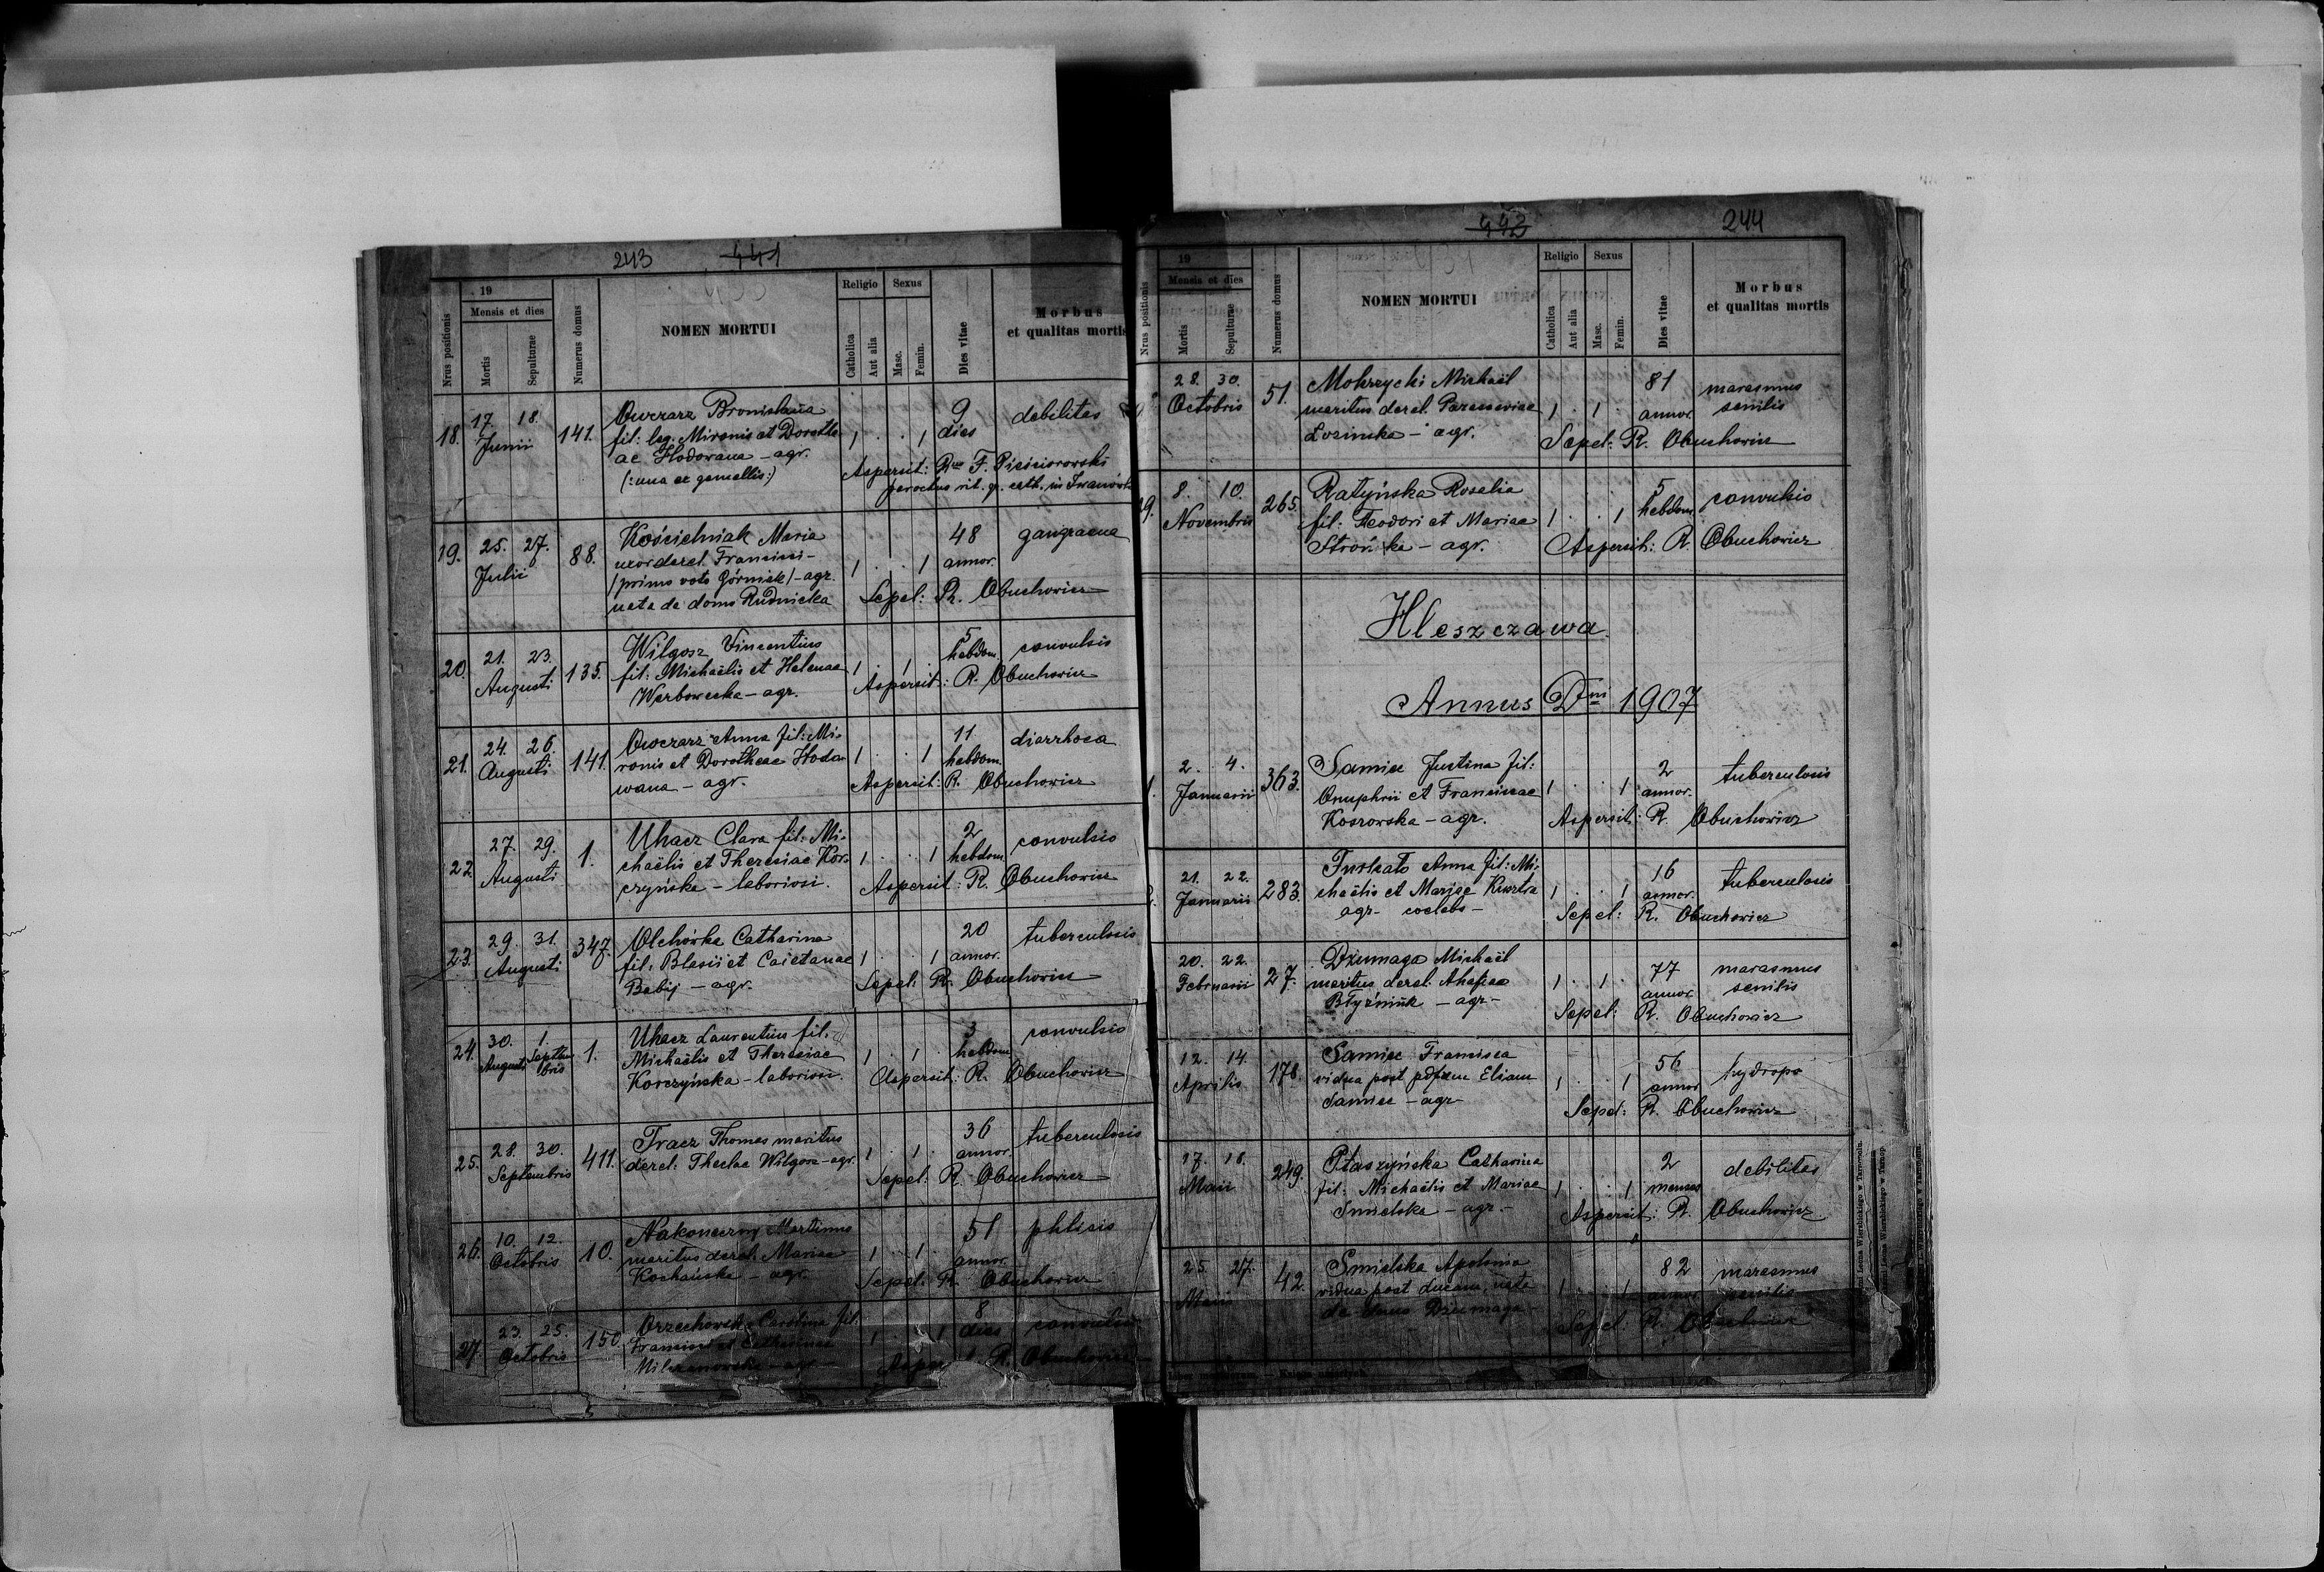 243 441
. 19
Mensis et dies
Nrus positionis
Mortis
Sepulturae
Numerus domus
NOMEN MORTUI
Religio
Sexus
Catholica
Aut alia
Masc.
Femin.
Dies vitae
Morbus
et qualitas mortis
18. 17. 18. Junii 141. Owczarz Bronislava 9 dies debilitas
fil: leg: Mironis et Dorothe- 1 . . 1
ae Hodowana - agr.
(: una ex gemellis :)
Aspersit: F.
parochus rit. gr. cath. in
19. 25. 27. Julii 88. Kościelniak Maria 48 annor. gangraena
uxor derel. Francisci - 1 . . 1
/primo voto Górniak/ - agr.
nata de domo Rudnicka
Sepel: R. Obuchowicz
20. 21. 23. Augusti 135. Wilgosz Vincentius 5 hebdom. convulsio
fil: Michaëlis et Helenae 1 . 1 .
Werbowecka - agr.
Aspersit: R. Obuchowicz
21. 24. 26. Augusti 141. Owczarz Anna fil: Mi- 11 hebdom. diarrhoea
ronis et Dorotheae Hodo- 1 . . 1
wana - agr.
Aspersit: R. Obuchowicz
22. 27. 29. Augusti 1. Uhacz Clara fil: Mi- 2 hebdom. convulsio
chaëlis et Theresiae Kor- 1 . . 1
czyńska - laboriosi.
Aspersit: R. Obuchowicz
23. 29. 31. Augusti 347. Olchówka Catharina 20 annor. tuberculosis
fil: Blasii et Caietanae 1 . . 1
Babij - agr.
Sepel: R. Obuchowicz
24. 30. Augusti 1. Septembris 1. Uhacz Laurentius fil. 3 hebdom. convulsio
Michaëlis et Theresiae 1 . 1 .
Korczyńska - laboriosi.
Aspersit: R. Obuchowicz
25. 28. 30. Septembris 411. Tracz Thomas maritus 36 annor. tuberculosis
derel: Theclae Wilgosz - agr. 1 . 1 .
Sepel: R. Obuchowicz
26. 10. 12. Octobris 10. Nakoneczny Martinus 51 annor. phtisis
maritus derel. Mariae 1 . 1 .
Kochańska - agr.
Sepel: R. Obuchowicz
27. 23. 25. Octobris 150. Orzechowska Carolina fil. 8 dies convulsio
Francisci et Catharinae 1 . . 1
- agr.
R. Obuchowicz
442 244
19
Mensis et dies
Nrus positionis
Mortis
Sepulturae
Numerus domus
NOMEN MORTUI
Religio
Sexus
Catholica
Aut alia
Masc.
Femin.
Dies vitae
Morbus
et qualitas mortis
28. 30. Octobris 51. Mokrzycki Michaël 81 annor. marasmus senilis
maritus derel. 1 . 1 .
Łozińska - agr.
Sepel: R. Obuchowicz
8. 10. Novembris 265. Ratyńska Rosalia 5 hebdom. convulsio
fil: Teodori et Mariae 1 . . 1
Strońska - agr.
Aspersit: R. Obuchowicz
Hleszczawa.
Annus Dni 1907
1. 2. 4. Januarii 363. Samiec Justina fil: 2 annor. tuberculosis
Onuphrii et Franciscae 1 . . 1
Kosrowska - agr.
Aspersit: R. Obuchowicz
21. 22. Januarii 283. Anna fil: Mi- 16 annor. tuberculosis
chaëlis et Mariae 1 . . 1
agr. - coelebs -
Sepel: R. Obuchowicz
20. 22. Februarii 27. Dziumaga Michaël 77 annor. marasmus senilis
maritus derel. Ahafiae 1 . 1 .
- agr -
Sepel: R. Obuchowicz
12. 14. Aprilis 178. Samiec Francisca 56 annor. hydrops
vidua post Eliam 1 . . 1
Samiec - agr -
Sepel: R. Obuchowicz
17. 18. Maii 249. Ptaszyńska Catharina 2 menses debilitas
fil: Michaëlis et Mariae 1 . . 1
Smielska - agr. -
Aspersit: R. Obuchowicz
25. 27. Maii 42. Smielska Apolonia 82 annor. marasmus senilis
vidua post Lucam, nata 1 . . 1
de domo Dziumaga -
Sepel: R. Obuchowicz
Leona Wierzbickiego w Tarnopolu.